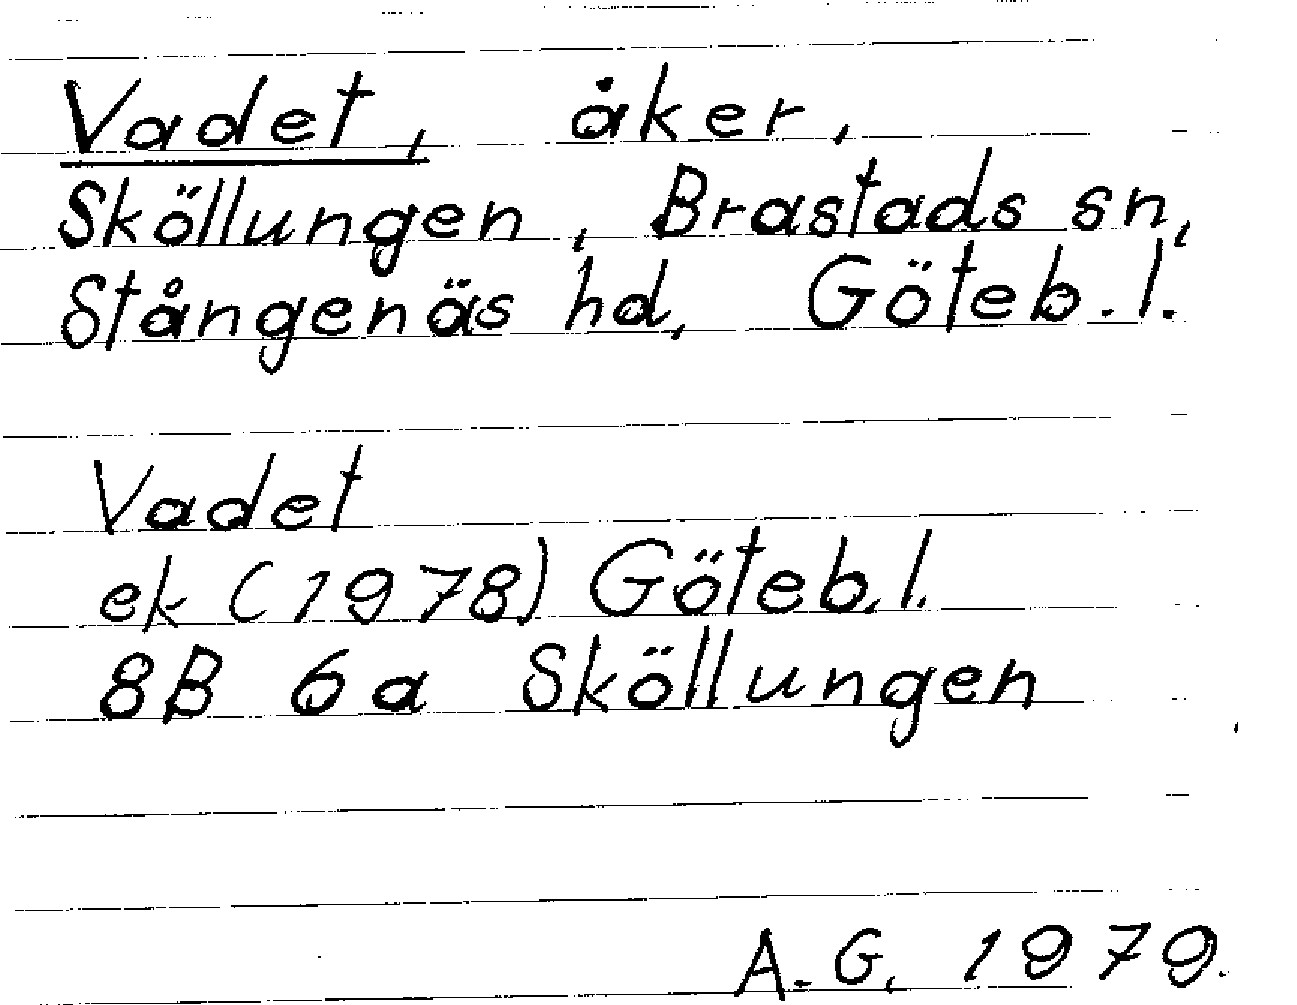 Vadet, åker,
Sköllungen, Brastads sn,
Stångenäs hd, Göteb.l.
Vadet
ek (1978) Göteb.l.
8B 6a Sköllungen
A.G. 1979.